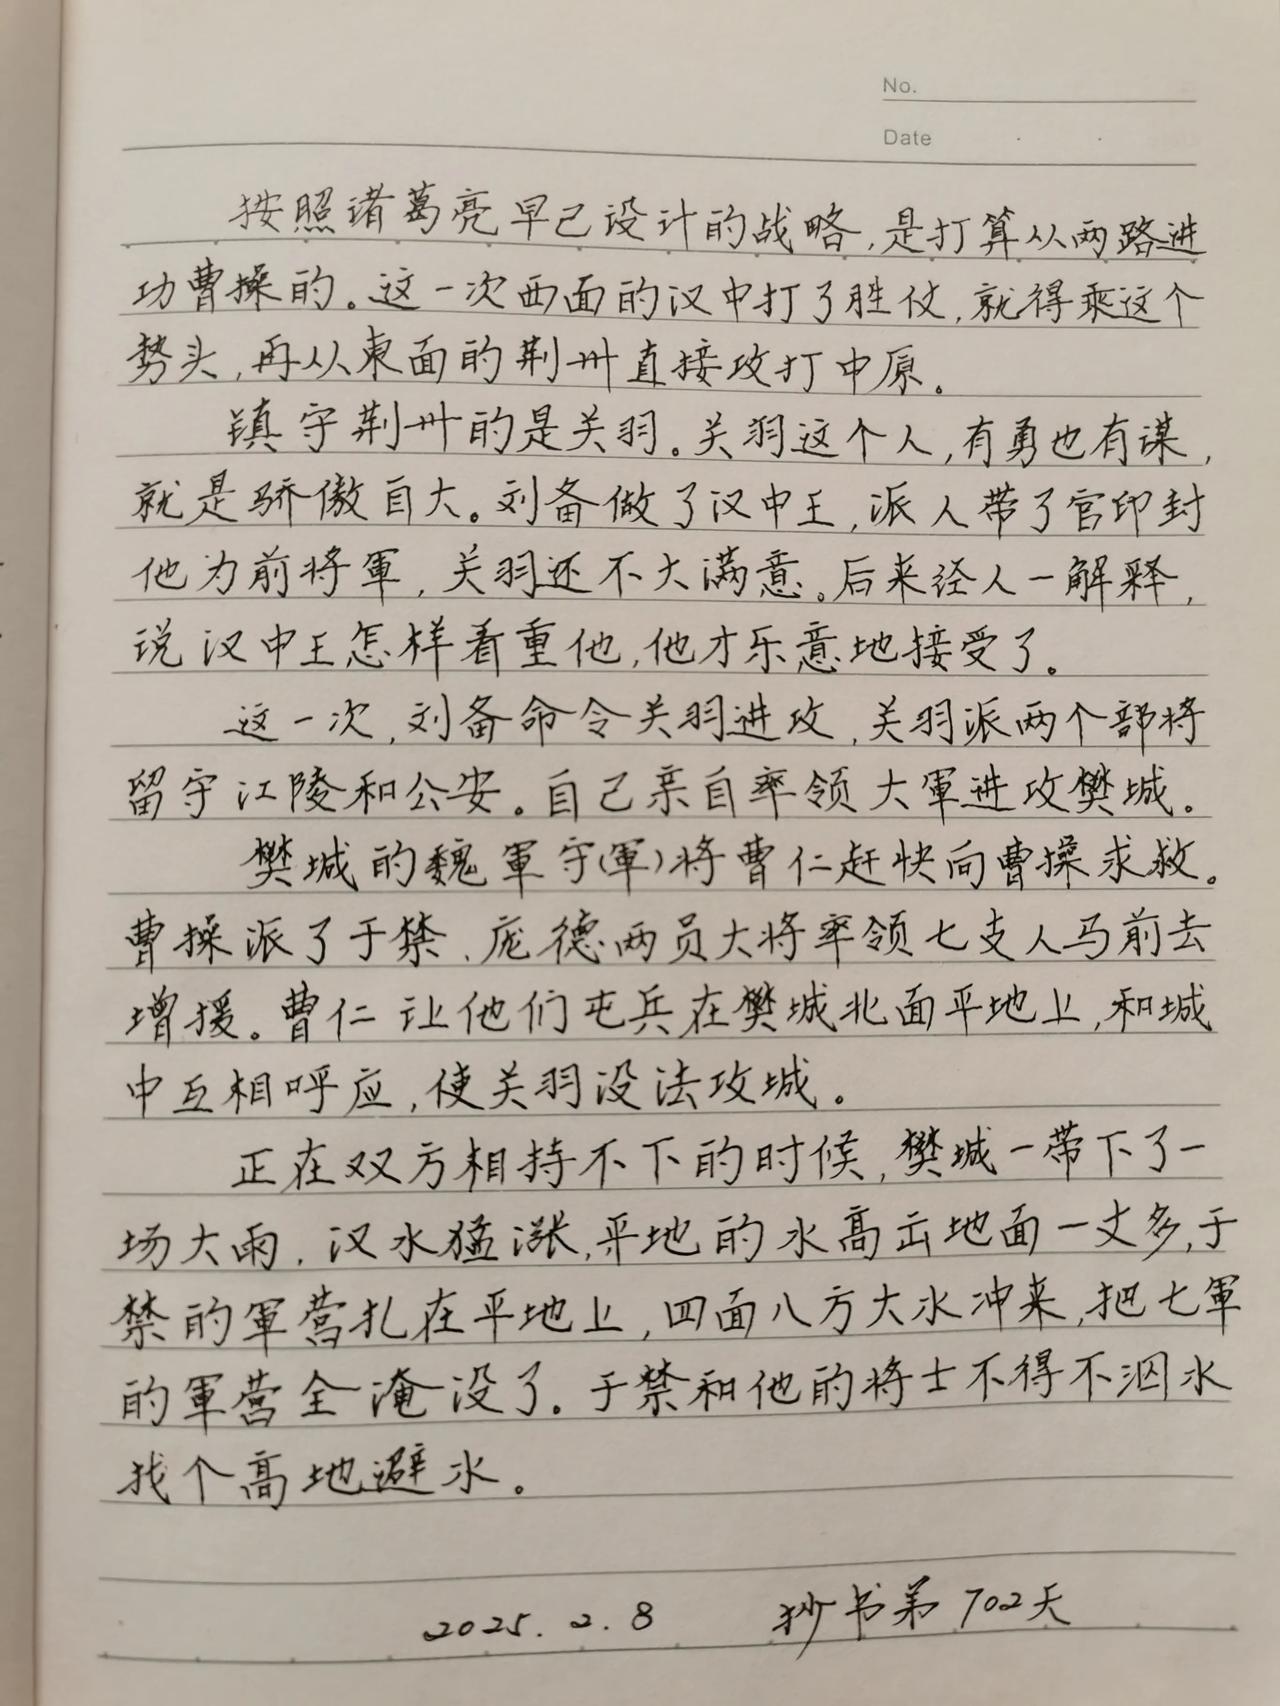 No.
Date
按照诸葛亮早已设计的战略,是打算从两路进
功曹操的。这一次西面的汉中打了胜仗,就得乘这个
势头,再从東面的荆州直接攻打中原。
镇守荆州的是关羽。关羽这个人,有勇也有谋,
就是骄傲自大。刘备做了汉中王,派人带了官印封
他为前将軍,关羽还不大满意。后来经人一解释,
说汉中王怎样看重他,他才乐意地接受了。
这一次,刘备命令关羽进攻,关羽派两个部将
留守江陵和公安。自己亲自率领大軍进攻樊城。
樊城的魏軍守(軍)将曹仁赶快向曹操求救。
曹操派了于禁、庞德两员大将率领七支人马前去
增援。曹仁让他们屯兵在樊城北面平地上,和城
中互相呼应,使关羽没法攻城。
正在双方相持不下的时候,樊城一带下了一
场大雨,汉水猛涨,平地的水高出地面一丈多,于
禁的軍营扎在平地上,四面八方大水冲来,把七軍
的軍营全淹没了。于禁和他的将士不得不泅水
找个高地避水。
2025.2.8 抄书第702天